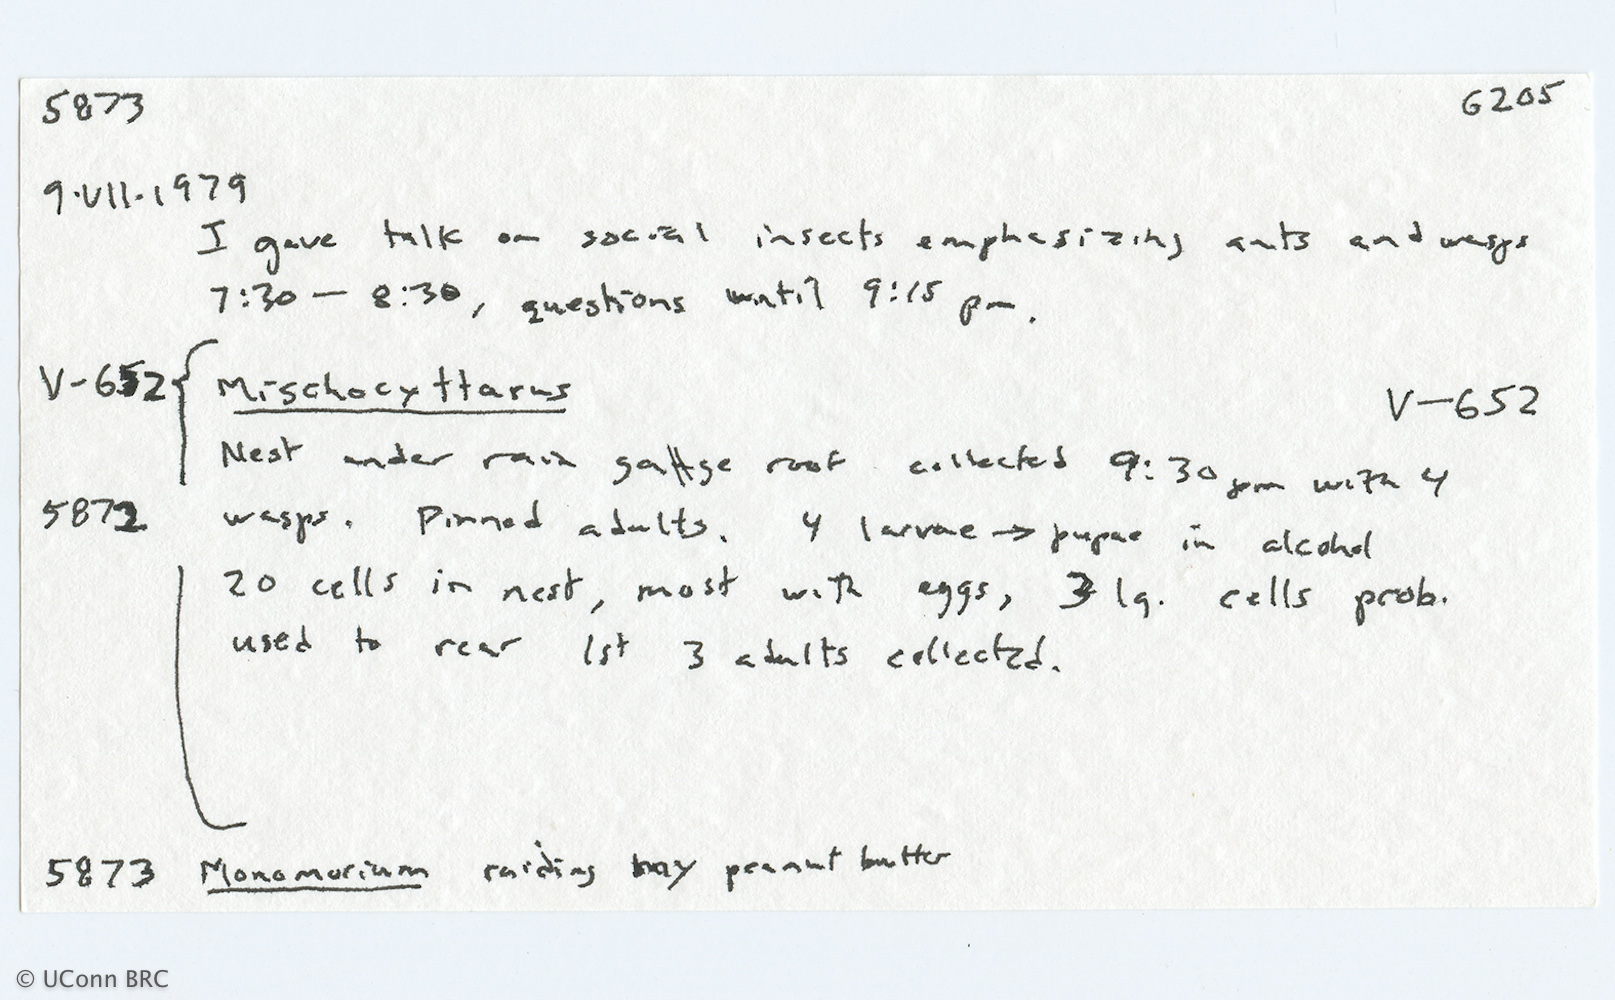 5873 6205
9.VII.1979
I gave talk on social insects emphasizing ants and wasps
7:30 — 8:30, questions until 9:15 pm.
V-652 { Mischocyttarus V-652
Nest under rain roof collected 9:30 pm with 4
5872 wasps. Pinned adults. 4 larvae → pupae in alcohol
20 cells in nest, most with eggs, 3 lg. cells prob.
used to rear 1st 3 adults collected.
5873 Monomorium raiding my peanut butter
© UConn BRC